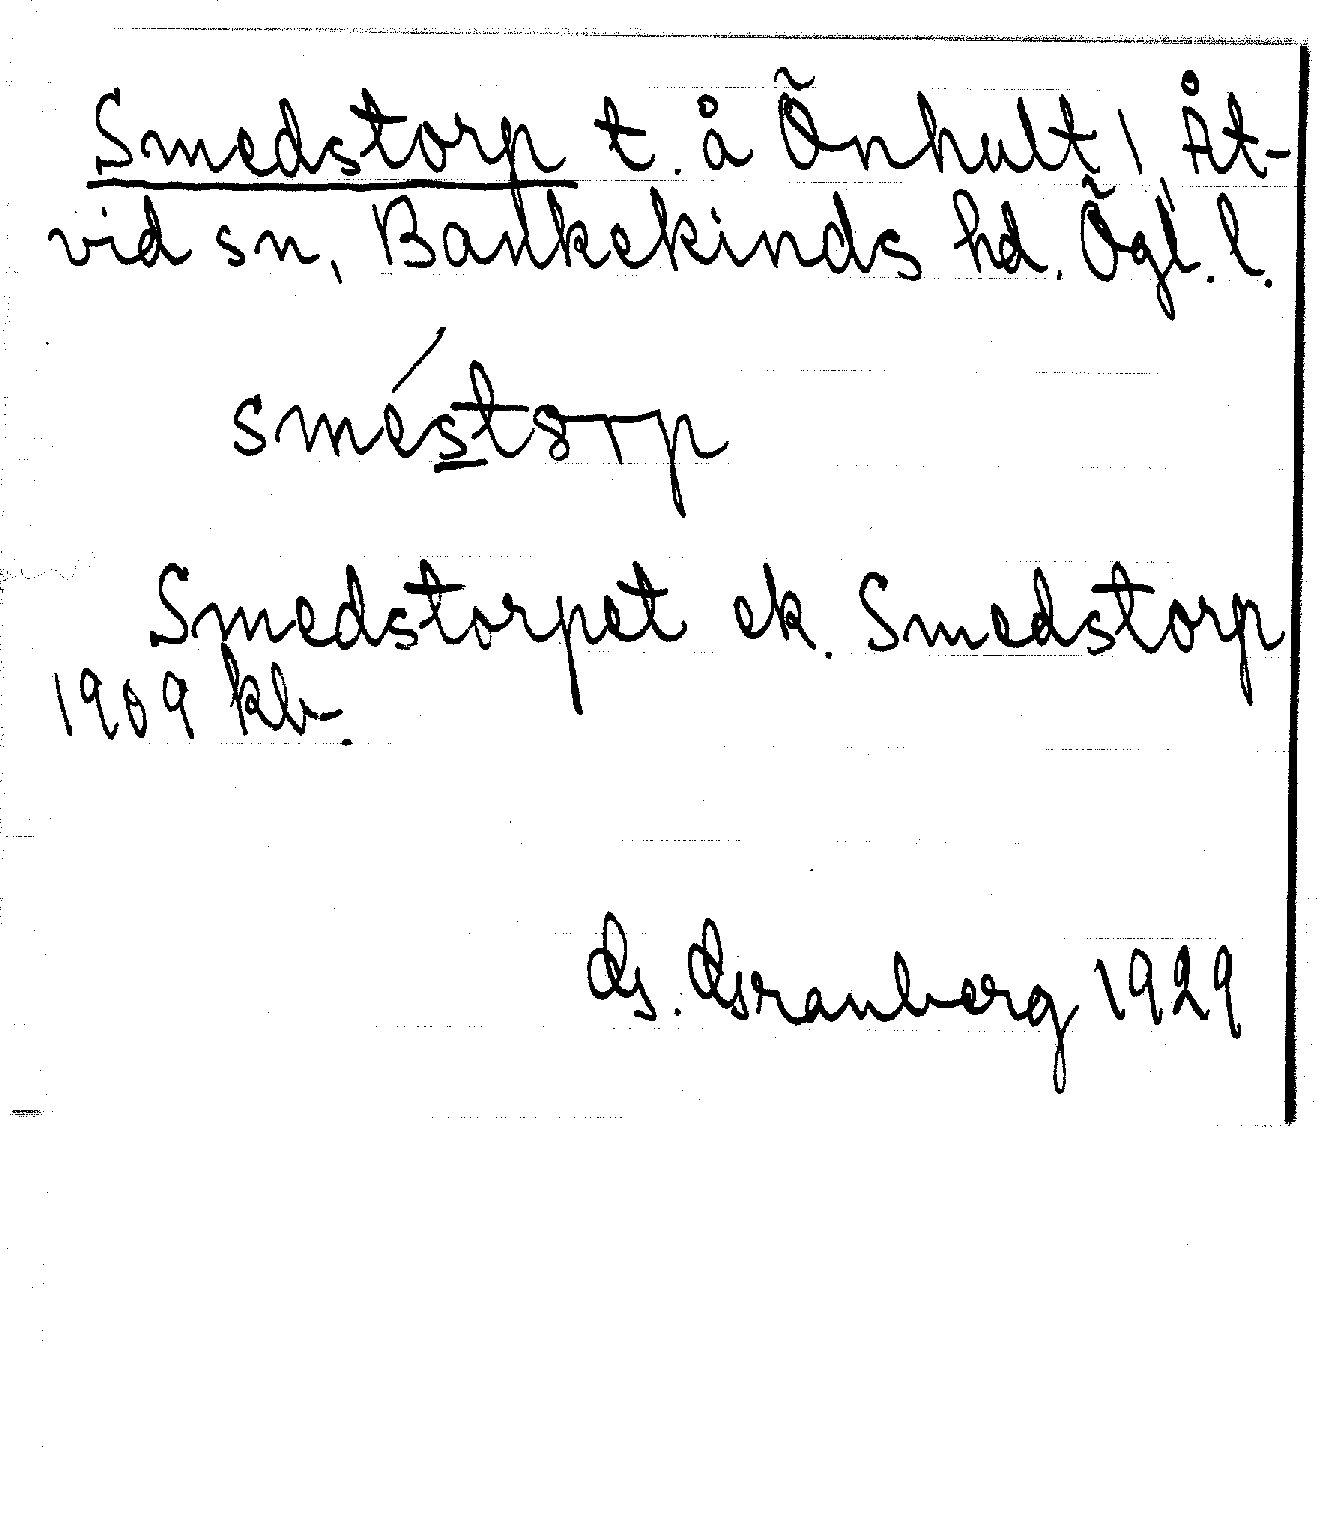 Smedstorp t. å Önhult 1, Åt-
vid sn, Bankekinds hd. Ögl. l.
sméstȣrp
Smedstorpet ek. Smedstorp
1909 kb.
G. Granberg 1929